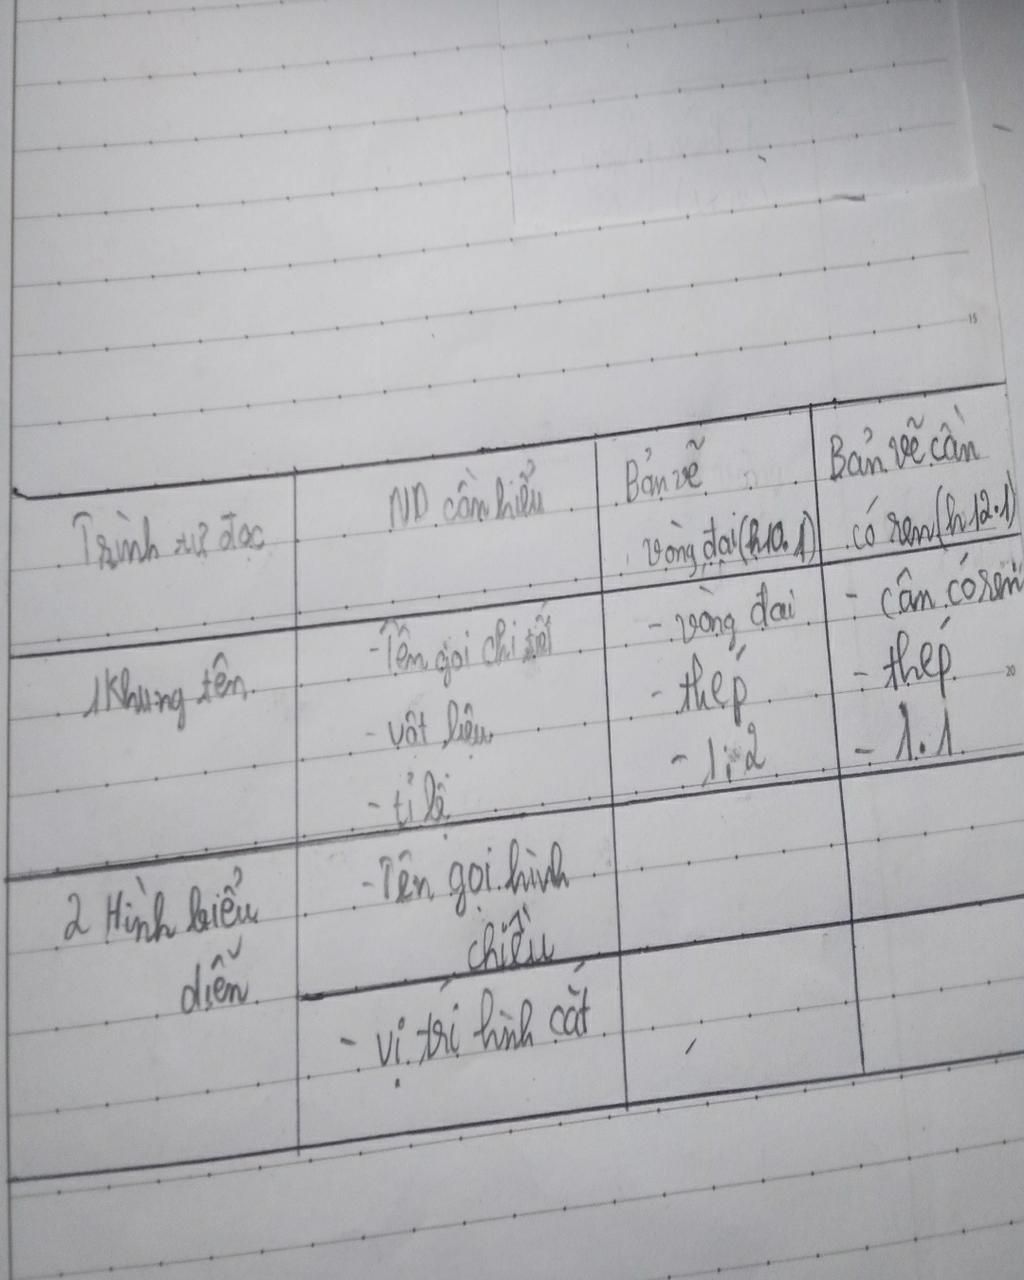 15
Trình tự đọc
ND cần hiểu
Bản vẽ
vòng đai (h10.1)
Bản vẽ cần
có ren (h12.1)
1 Khung tên
- Tên gọi chi tiết
- vật liệu
- tỉ lệ
- vòng đai
- thép
- 1:2
- cân có ren
- thép
- 1.1
20
2 Hình biểu
diễn
- Tên gọi hình
chiếu
- vị trí hình cắt